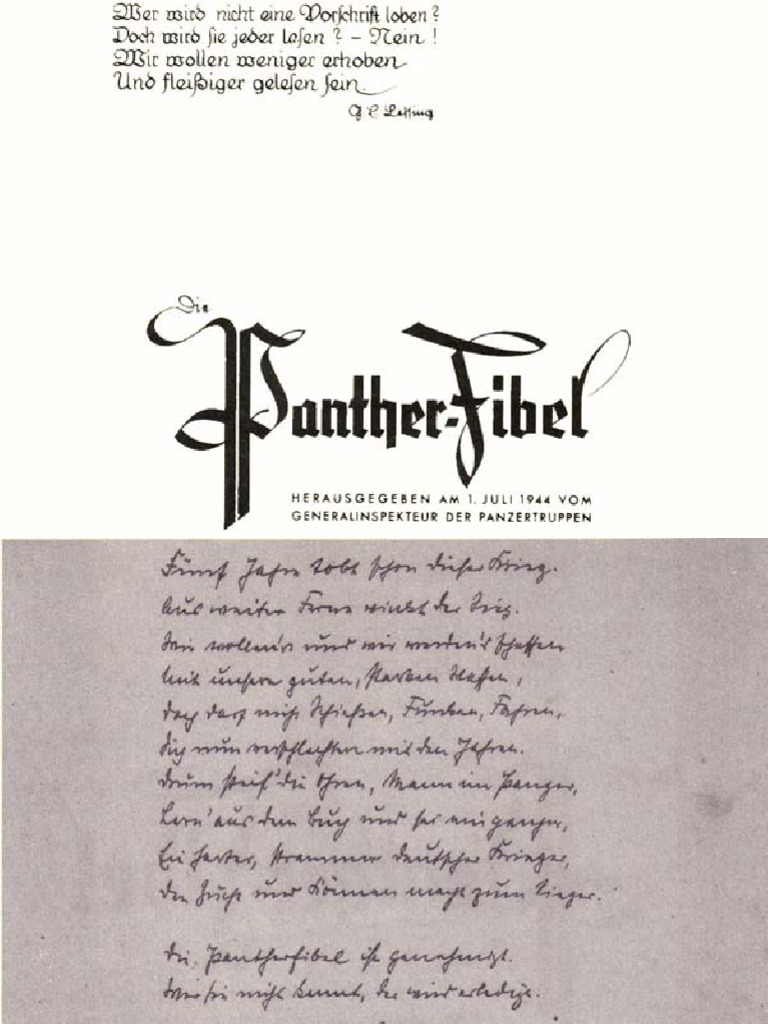 Wer wird nicht eine Vorschrift loben?
Doch wird sie jeder lesen? – Nein!
Wir wollen weniger erhoben
Und fleißiger gelesen sein.
G E Lessing
Die
Panther-Fibel
HERAUSGEGEBEN AM 1. JULI 1944 VOM
GENERALINSPEKTEUR DER PANZERTRUPPEN
Fünf Jahre tobt schon dieser Krieg.
Aus weiter Ferne winkt der Sieg.
Wir wollen's und wir werden's schaffen
Mit unsern guten, starken Waffen,
doch darf nicht Schießen, Funken, Fahren,
Sich nun verschlechtern mit den Jahren.
drum steif' die Ohren, Mann im Panzer,
Lern' aus dem Buch und sei ein ganzer,
Ein harter, strammer deutscher Krieger,
den Zucht und Können macht zum Sieger.
Die Pantherfibel ist genehmigt.
Wer sie nicht kennt, der wird erledigt.